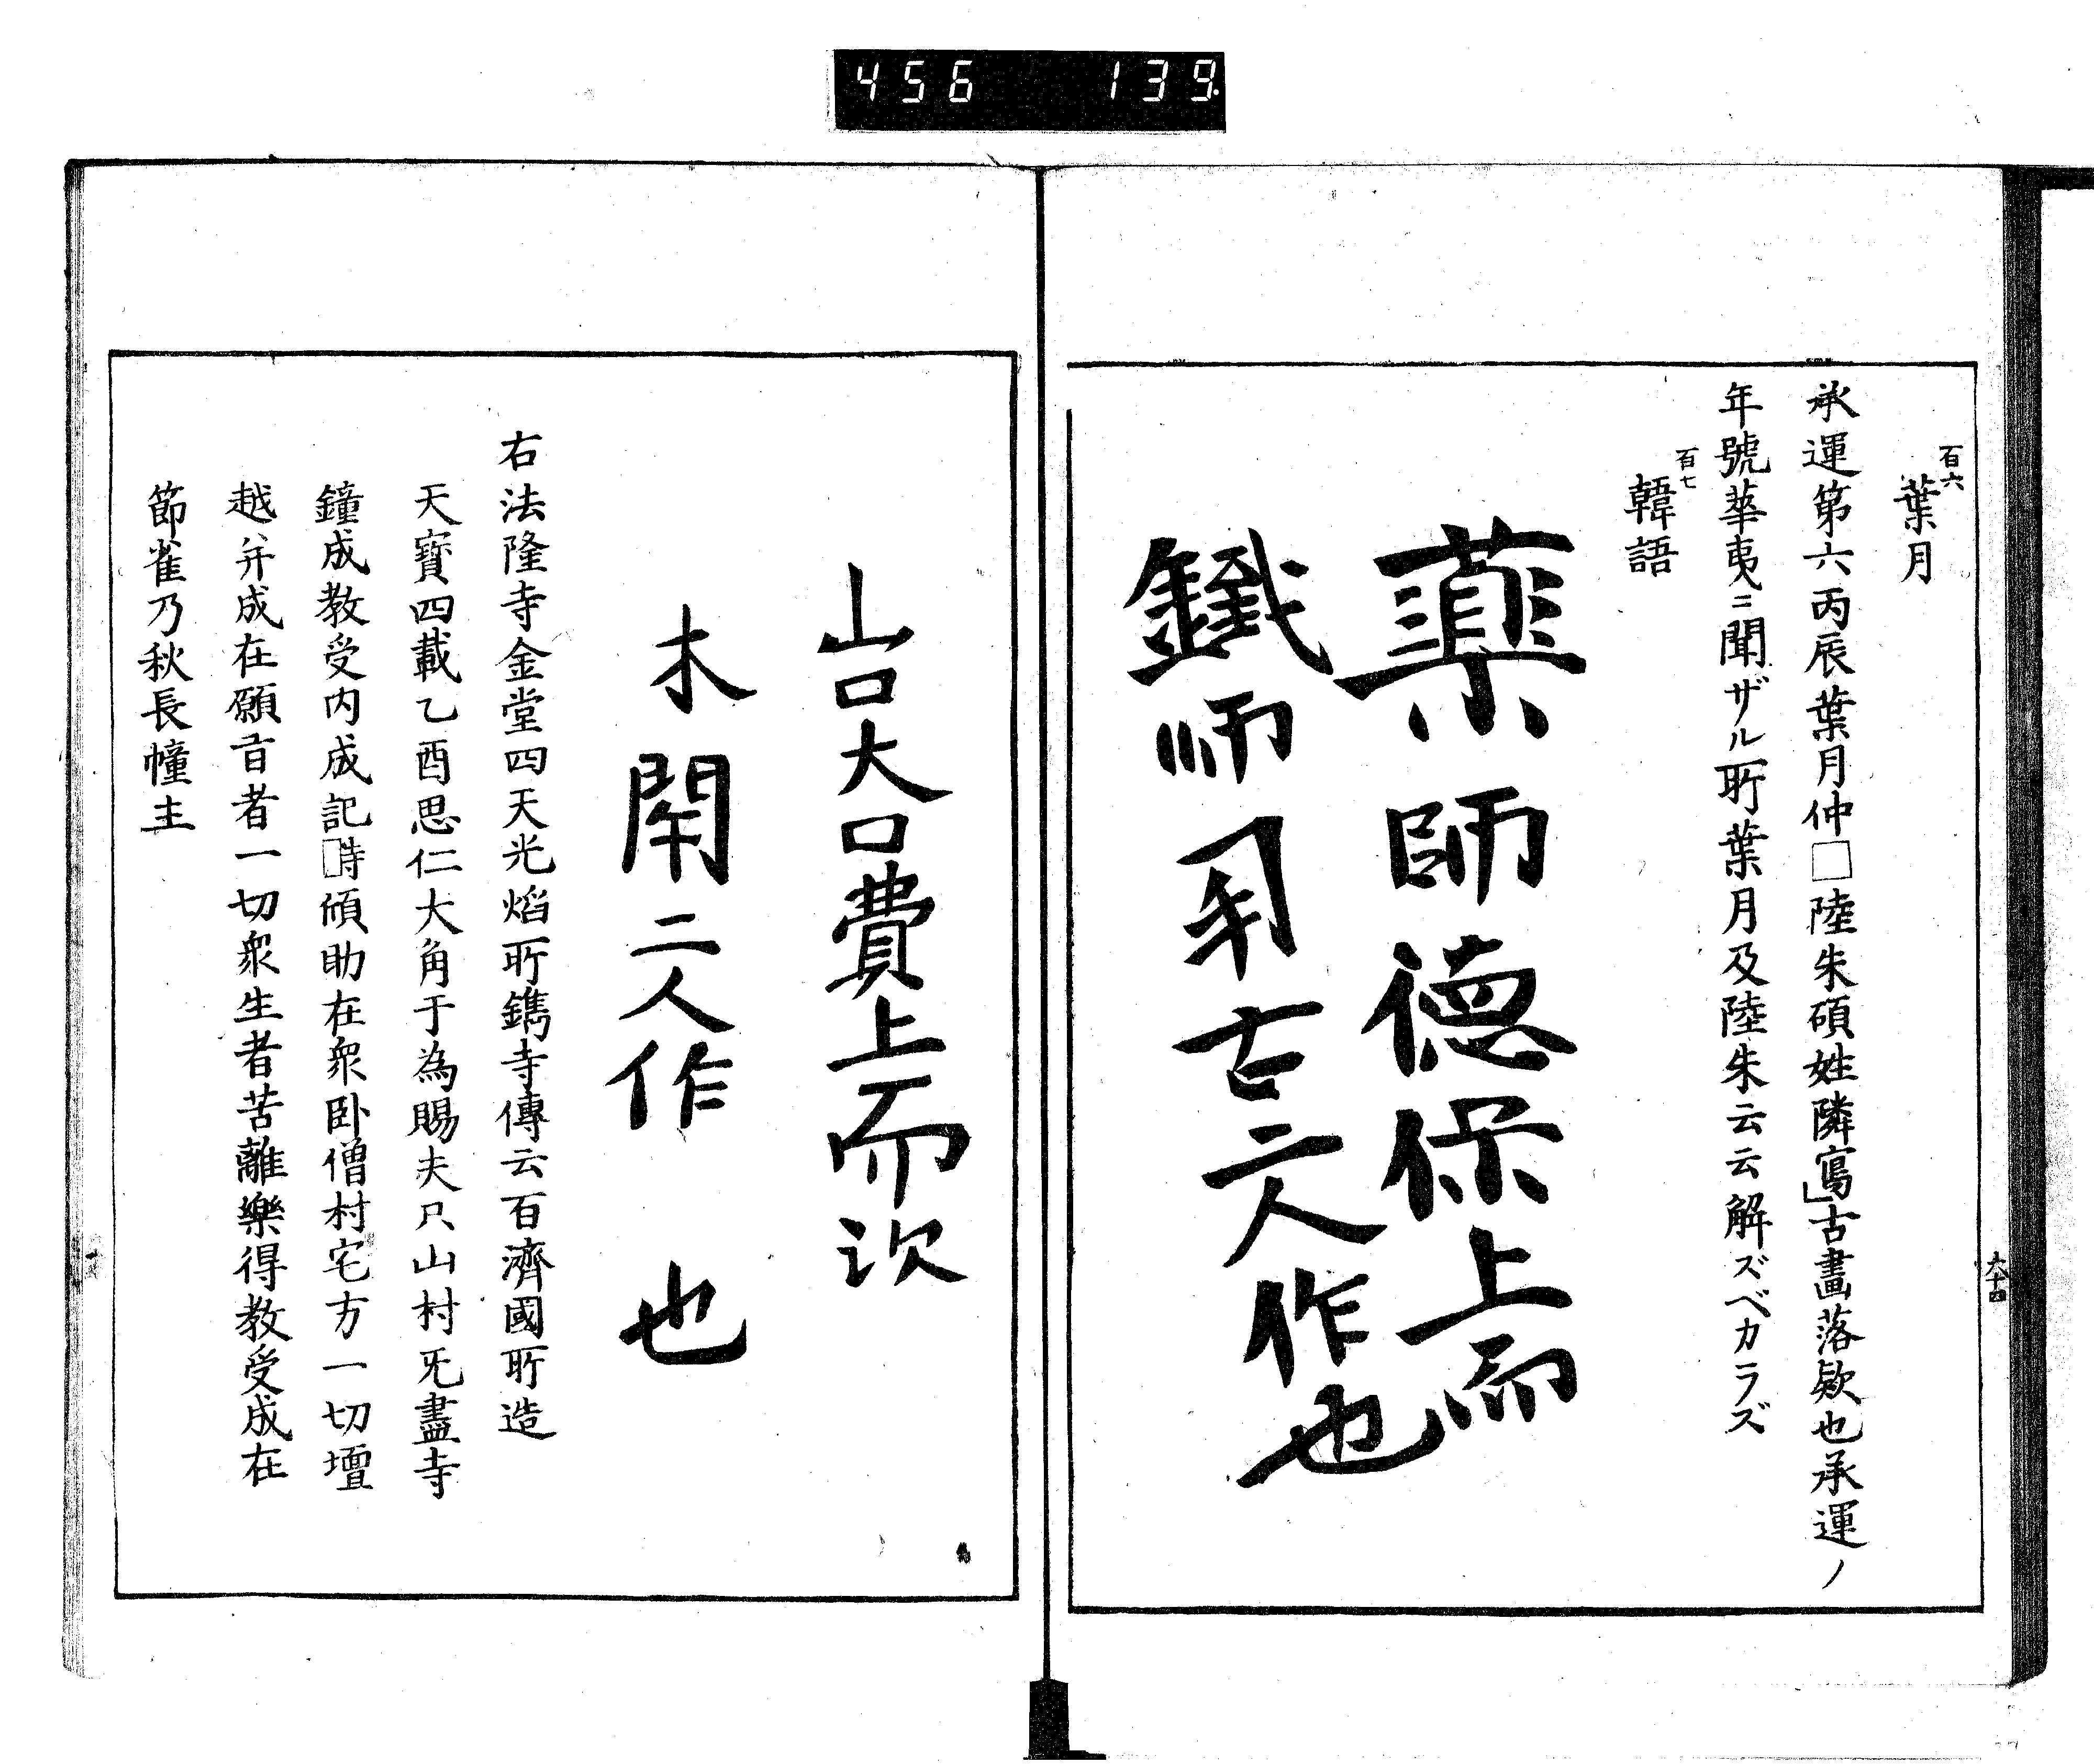 456 139.
百六
葉月
承運第六丙辰葉月仲□陸朱碩姓隣寫」古畫落欵也承運ノ
年號華夷ニ聞ザル所葉月及陸朱云云解ズベカラズ
百七
韓語
藥師德保上而
鐵師 古二人作也
六十四
山口大口費上而次
木閇二人作也
右法隆寺金堂四天光焰所鐫寺傳云百濟國所造
天寶四載乙酉思仁大角于為賜夫只山村旡盡寺
鐘成教受内成記□時傾助在衆卧僧村宅方一切壇
越并成在願旨者一切衆生者苦離樂得教受成在
節雀乃秋長幢主